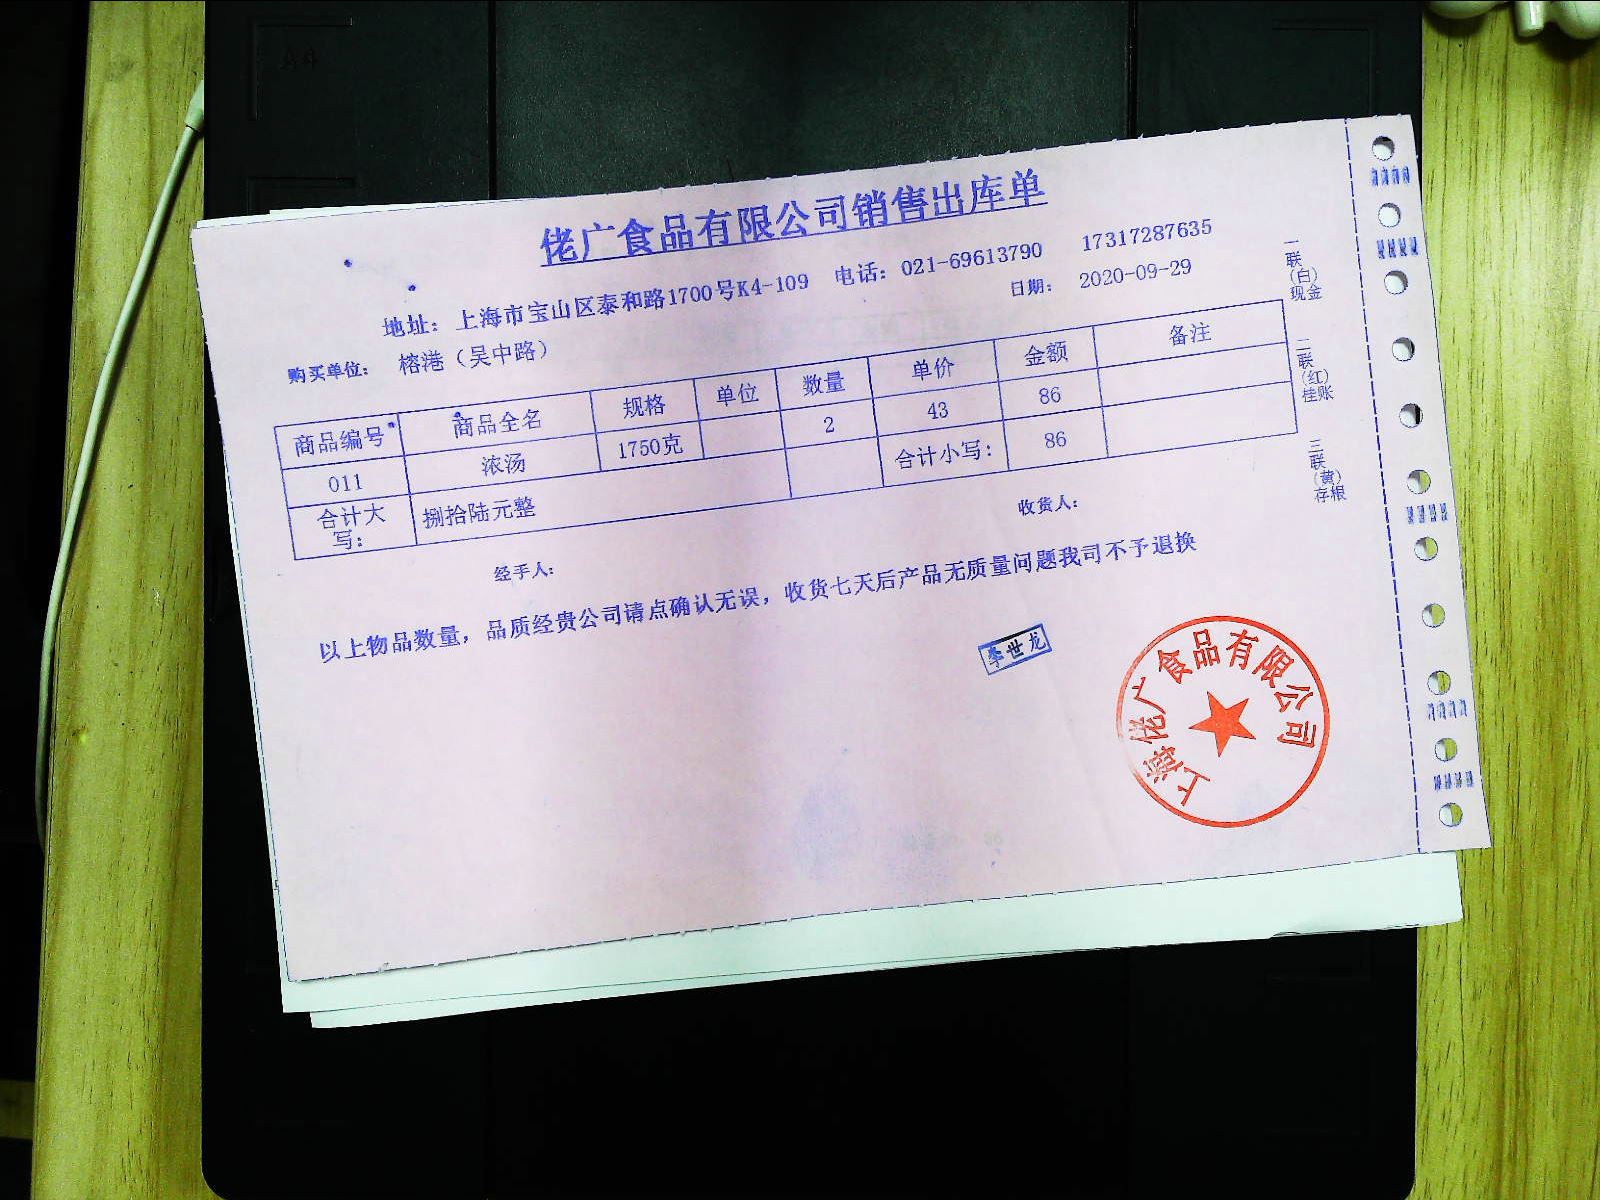 佬广食品有限公司销售出库单
地址: 上海市宝山区泰和路1700号K4-109 电话: 021-69613790 17317287635
购买单位: 榕港（吴中路） 日期: 2020-09-29
商品编号 商品全名 规格 单位 数量 单价 金额 备注
011 浓汤 1750克 2 43 86
合计大写: 捌拾陆元整 合计小写: 86
经手人: 收货人:
以上物品数量，品质经贵公司请点确认无误，收货七天后产品无质量问题我司不予退换
一联(白)现金
二联(红)桂账
三联(黄)存根
李世龙
上海佬广食品有限公司